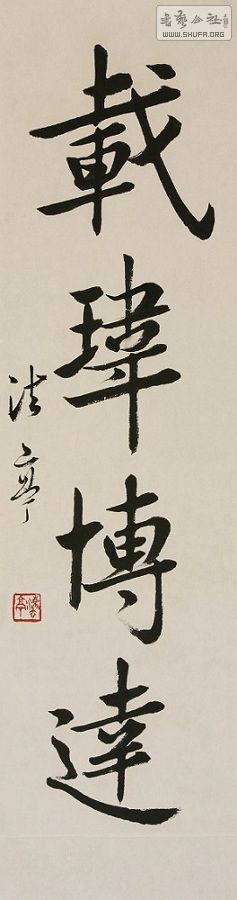 書藝公社
WWW.SHUFA.ORG
載瑋博達
法亭